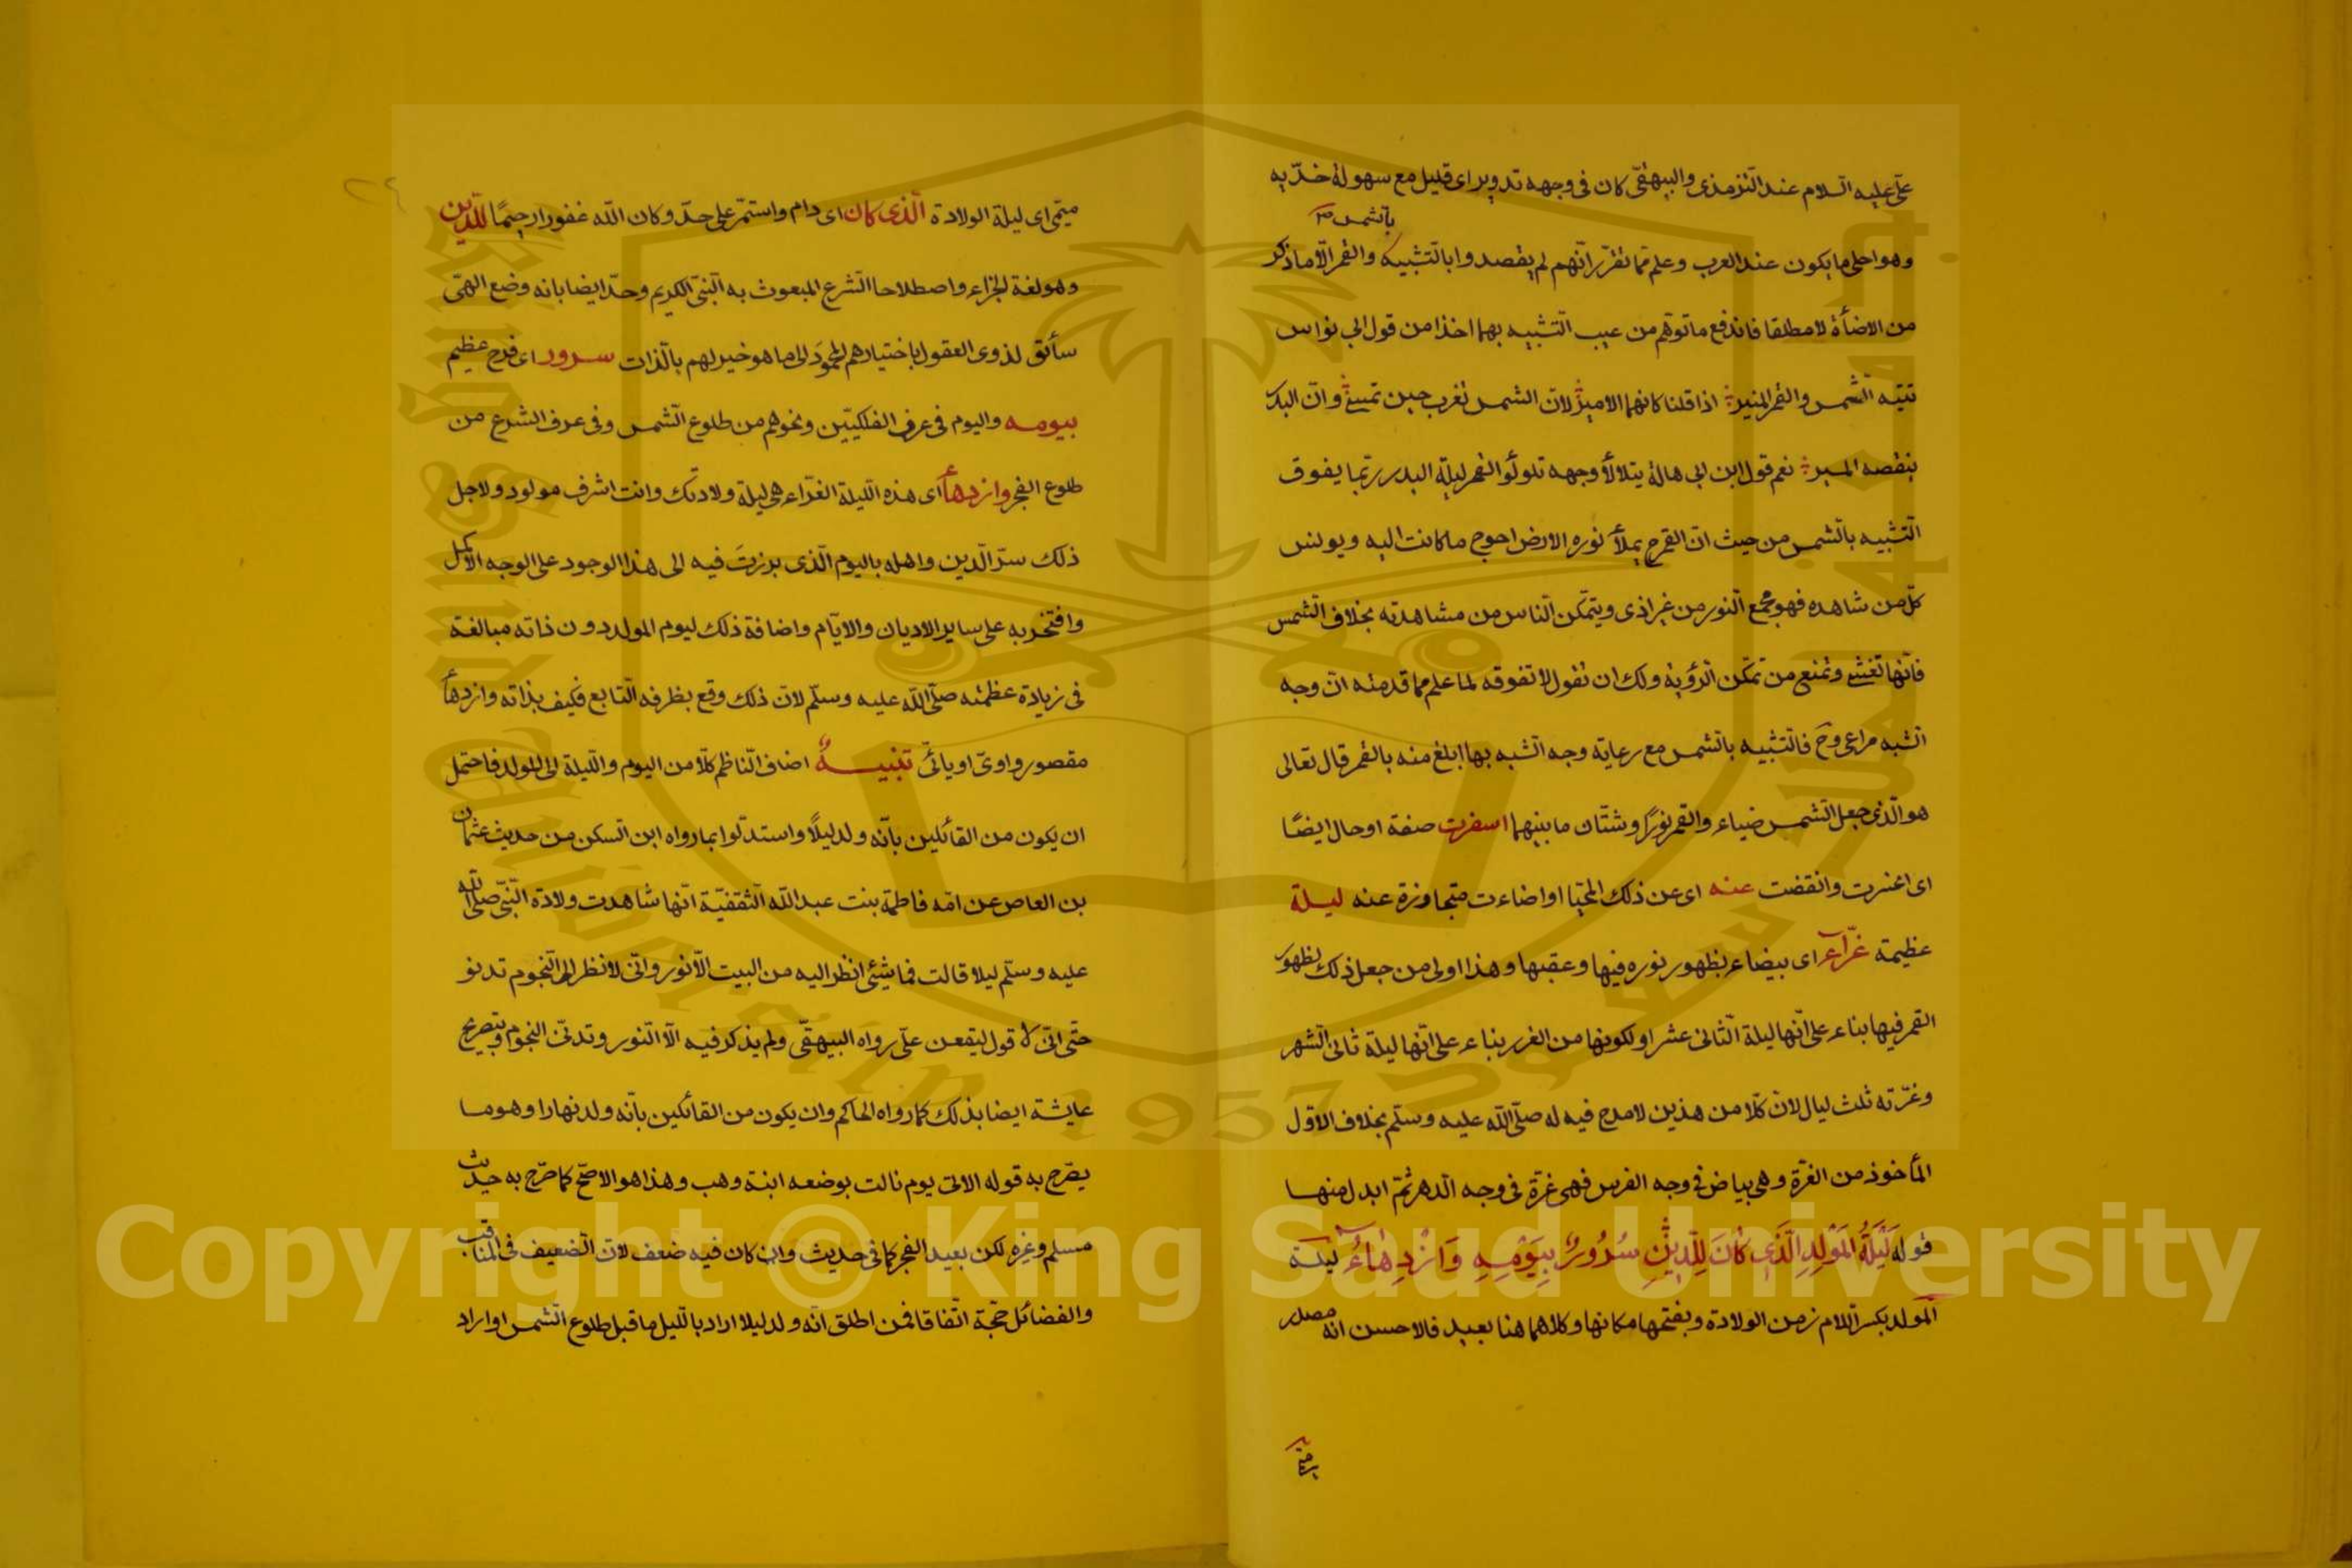 علّى عليه السلام عند الترمذى والبيهقى كان فى وجهه تدوير اى قليل مع سهولة خدّيه
بالشمس صح
وهو احلى ما يكون عند العرب وعلم مما تقرر انّهم لم يقصدوا بالتشبيه والقمر الّا ما ذكر
من الاضأة لا مطلقا فاندفع ما توهّم من عيب التشبيه بهما اخذا من قول ابى نواس
تتيه الشمس والقمر المنير اذا قلنا كانهما الامير لانّ الشمس تغرب حين تمسى وانّ البدر
ينقصه المسير نعم قول ابن ابى هالة يتلألأ وجهه تلؤلؤ القمر ليلة البدر ربّما يفوق
التشبيه بالشمس من حيث انّ القمر ح يملأ نوره الارض احوج ما كانت اليه ويونس
كلّ من شاهده فهو مجمع النور من غير اذى ويتمكّن الناس من مشاهدته بخلاف الشمس
فانّها تغشى وتمنع من تمكّن الرؤية ولك ان تقول لا تفوقه لما علم مما قدمته انّ وجه
الشبه مراعى وح فالتشبيه بالشمس مع رعاية وجه الشبه بها ابلغ منه بالقمر قال تعالى
هو الّذى جعل الشمس ضياء والقمر نورًا وشتّان ما بينهما اسفرت صفة او حال ايضًا
اى اعنرت وانقضت عنه اى عن ذلك المحيّا او اضاءت متجاوزة عنه ليلة
عظيمة غرّآء اى بيضاء بظهور نوره فيها وعقبها وهذا اولى من جعل ذلك بظهور
القمر فيها بناء على انّها ليلة الثانى عشر او لكونها من الغرر بناء على انّها ليلة ثانى الشهر
وغرّته ثلث ليال لانّ كلّا من هذين لا مدح فيه له صلّى الله عليه وسلّم بخلاف الاوّل
المأخوذ من الغرّة وهى بياض فى وجه الفرس فهى غرّة فى وجه الدهر ثمّ ابدل منها
قوله لَيْلَةُ الْمَوْلِدِ الَّذِى كَانَ لِلدِّينِ سُرُورٌ بِيَوْمِهِ وَازْدِهَاءُ ليلة
المولد بكسر اللام زمن الولادة وبفتحها مكانها وكلاهما هنا بعيد فالاحسن انّه مصدر
ميمى
ميمّى اى ليلة الولادة الّذى كان اى دام واستمرّ على حدّ وكان الله غفورا رحيمًا للدّين
وهو لغة الجزاء واصطلاحا الشرع المبعوث به النبىّ الكريم وحدّ ايضا بانه وضع الهىّ
سائق لذوى العقول باختيارهم المحمود الى ما هو خير لهم بالذات سرور اى فرح عظيم
بيومه واليوم فى عرف الفلكيّين ونحوهم من طلوع الشمس وفى عرف الشرع من
طلوع الفجر وازدهأ اى هذه الليلة الغرّاء هى ليلة ولادتك وانت اشرف مولود ولاجل
ذلك سرّ الدين واهله باليوم الّذى برزتَ فيه الى هذا الوجود على الوجه الاكمل
وافتخر به على ساير الاديان والايّام واضافة ذلك ليوم المولد دون ذاته مبالغة
فى زيادة عظمته صلّى الله عليه وسلّم لانّ ذلك وقع بظرفه التابع فكيف بذاته وازدهأ
مقصور واوىّ او يائىّ تنبيــهٌ اضاف النّاظم كلّا من اليوم والليلة الى المولد فاحتمل
ان يكون من القائلين بانّه ولد ليلًا واستدلّوا بما رواه ابن السكن من حديث عثمان
بن العاص عن امّه فاطمة بنت عبد الله الثقفيّة انّها شاهدت ولادة النّبىّ صلّى الله
عليه وسلّم ليلا قالت فما شيئى انظر اليه من البيت الّا نور وانّى لانظر الى النجوم تدنو
حتّى انّى لاقول ليقعن علىّ رواه البيهقّى ولم يذكر فيه الّا النّور وتدلّى النجوم وبتصريح
عايشة ايضا بذلك كما رواه الحاكم وان يكون من القائلين بانّه ولد نهارا وهو ما
يصّرح به قوله الاتى يوم نالت بوضعه ابنة وهب وهذا هو الاصحّ كما صّرح به حديث
مسلم وغيره لكن بعيد الفجر كما فى حديث وان كان فيه ضعف لانّ الضعيف فى المناقب
والفضائل حجّة اتّفاقا فمن اطلق انّه ولد ليلا اراد بالليل ما قبل طلوع الشمس او اراد
Copyright © King Saud University
King Saud University
1957
جامعة الملك سعود